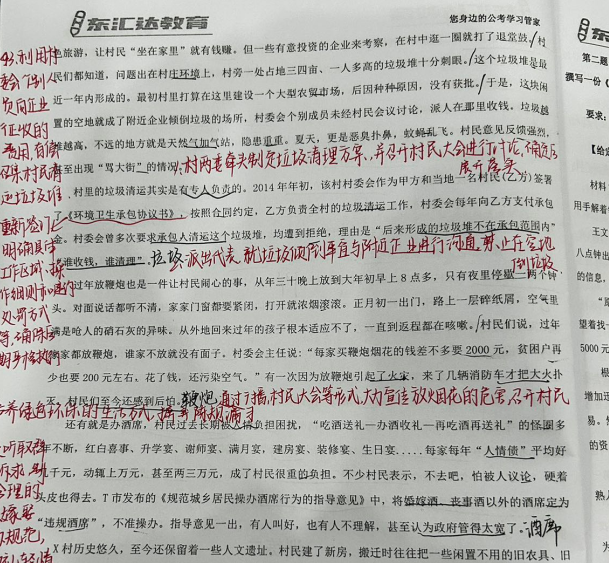 东汇达教育
您身边的公考学习管家
色旅游，让村民“坐在家里”就有钱赚。但一些有意投资的企业来考察，在村中逛一圈就打了退堂鼓。村
民们都知道，问题出在村庄环境上，村旁一处占地三四亩、一人多高的垃圾堆十分刺眼。这个垃圾堆是最
近一年内形成的。最初村里打算在这里建设一个大型农贸市场，后因种种原因，没有获批。于是，这块闲
置的空地就成了附近企业倾倒垃圾的场所，村委会个别成员未经村民会议讨论，派人在那里收钱。垃圾越
堆越高，不远的地方就是天然气加气站，隐患重重。夏天，更是恶臭扑鼻，蚊蝇乱飞。村民意见反馈强烈，
甚至出现“骂大街”的情况。
村两委牵头制定垃圾清理方案，并召开村民大会进行讨论，确定后
展开落实
村里的垃圾清运其实是有专人负责的。2014年年初，该村村委会作为甲方和当地一名村民（乙方）签署
了《环境卫生承包协议书》，按照合同约定，乙方负责全村的垃圾清运工作，村委会每年向乙方支付承包
金。村委会曾多次要求承包人清运这个垃圾堆，均遭到拒绝，理由是“后来形成的垃圾堆不在承包范围内”
“谁收钱，谁清理”。垃圾
派出代表，就垃圾倾倒事宜与附近企业进行沟通，禁止在空地
倒垃圾
过年放鞭炮也是一件让村民闹心的事，从年三十晚上放到大年初早上8点多，只有夜里停歇一两个钟
头。对面说话都听不清，家家门窗都要紧闭，打开就浓烟滚滚。正月初一出门，路上一层碎纸屑，空气里
满是呛人的硝石灰的异味。从外地回来过年的孩子根本适应不了，一直到返程都在咳嗽。村民们说，过年
家家都放鞭炮，谁家不放就没有面子。村委会主任说：“每家买鞭炮烟花的钱差不多要2000元，贫困户再
少也要200元左右，花了钱，还污染空气。”有一次因为放鞭炮引起了火灾，来了几辆消防车才把大火扑
灭。村民们至今还感到后怕。鞭炮
通过广播、村民大会等形式，大力宣传放烟花的危害，召开村民
养绿色环保的生活方式，摒弃陈规漏习
还有就是办酒席，村民过去长期被人情负担困扰，“吃酒送礼—办酒收礼—再吃酒再送礼”的怪圈多
年不断，红白喜事、升学宴、谢师宴、满月宴，建房宴、装修宴、生日宴……每家每年“人情债”平均好
几千元，动辄上万元，甚至两三万元，成了村民很重的负担。不少村民表示，不去吧，怕被人议论，硬着
头皮也得去。T市发布的《规范城乡居民操办酒席行为的指导意见》中，将婚嫁酒、丧事酒以外的酒席定为
“违规酒席”，不准操办。指导意见一出，有人叫好，也有人不理解，甚至认为政府管得太宽了。酒席
X村历史悠久，至今还保留着一些人文遗址。村民建了新房，搬迁时往往把一些闲置不用的旧农具、旧
征收的
重新签订
明确其
工作区域
处罚方式
听取群
合理的
规范，
第二题
撰写一份
要求：
材料
用手解着
王文
八点钟出
的信息，
望着找
5000元
增加
的资